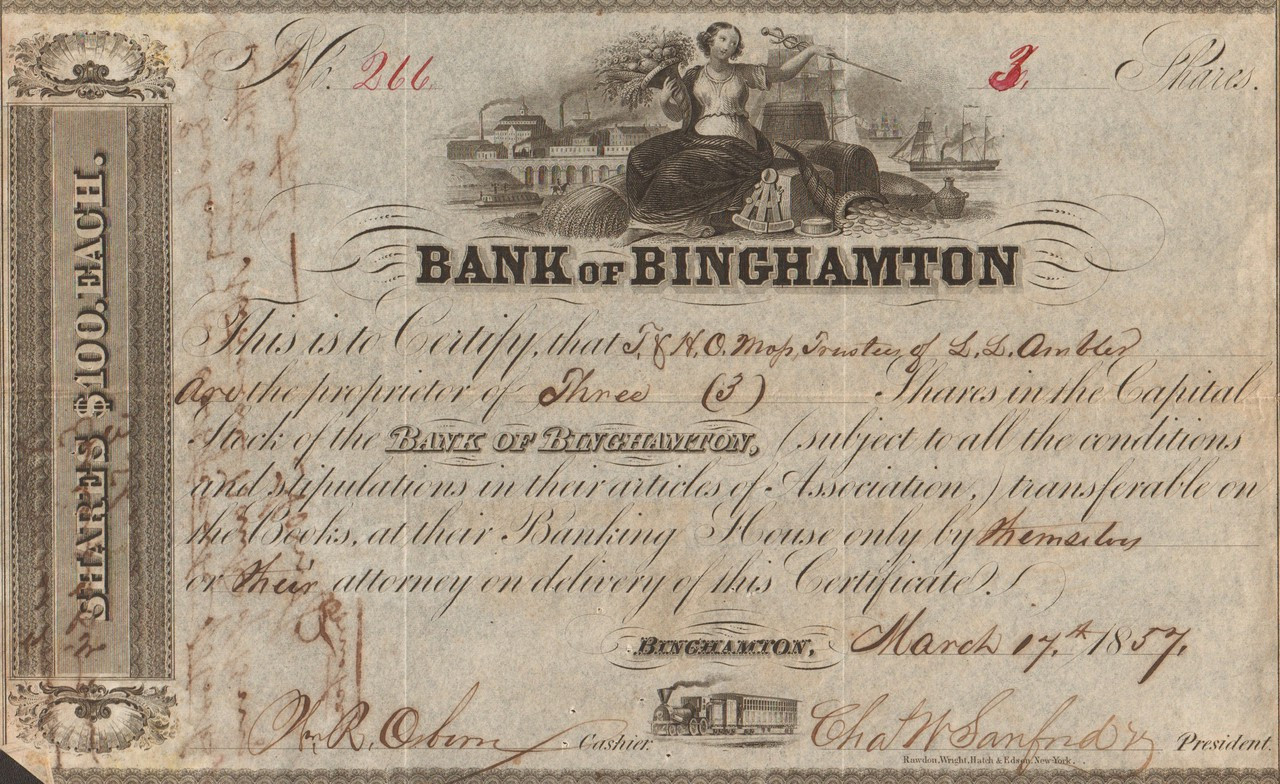 No. 266
3. Shares.
SHARES $100. EACH.
BANK OF BINGHAMTON
This is to Certify, that T. & H. O. Moss, Trustees of L. L. Ambler
Are the proprietor of Three (3) Shares in the Capital
Stock of the BANK OF BINGHAMTON, (subject to all the conditions
and stipulations in their articles of Association,) transferable on
the Books, at their Banking House only by themselves
or their attorney on delivery of this Certificate.
BINGHAMTON, March 17.th 1857.
Wm R. Osborn Cashier.
Chas W Sanford President.
Rawdon, Wright, Hatch & Edson, New-York.